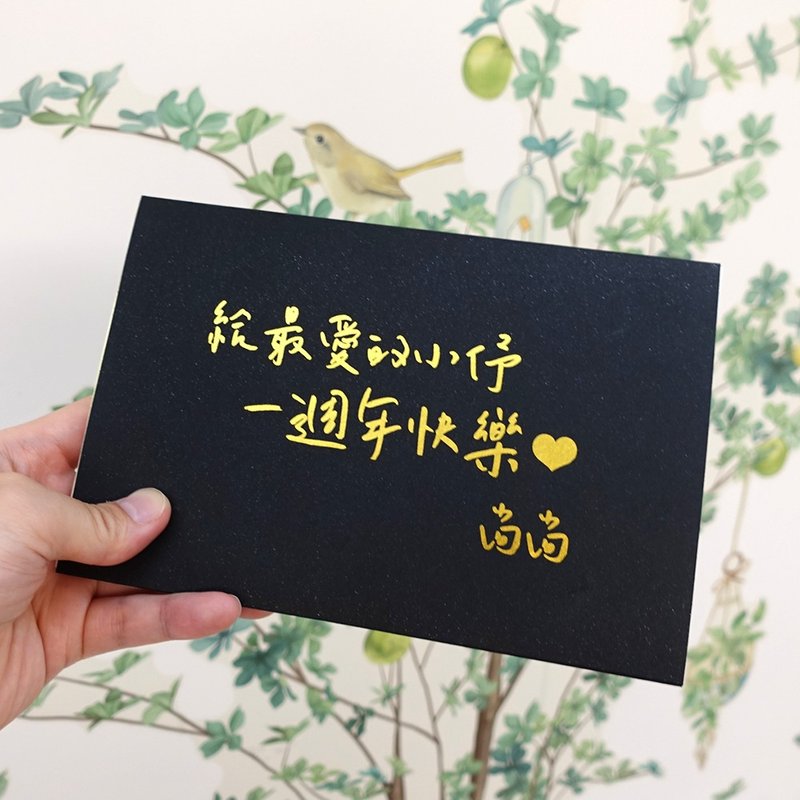 給最愛的小伃
一週年快樂♥
尚尚